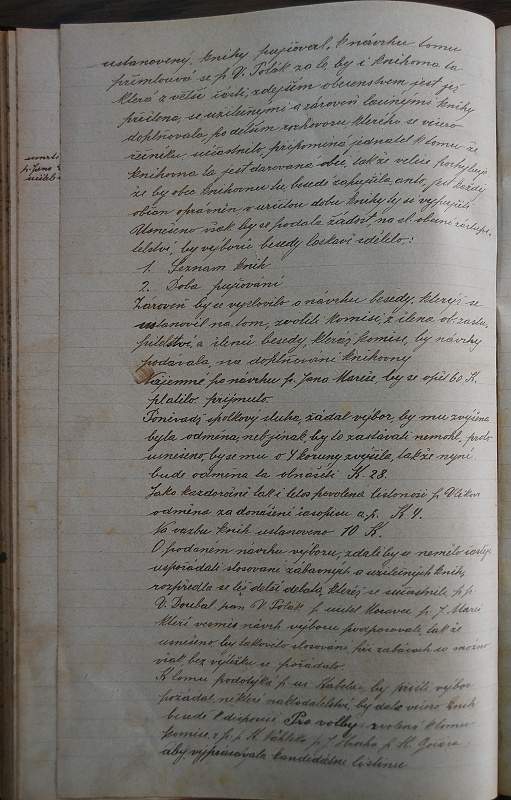 ustanovený, knihy pujčoval, k návrhu tomu
přimlouvá se p. V. Polák za to, by i knihovna ta
která z větší části, zdejším obecenstvem jest již
přečtena, se užitečnými a zároveň lacinými knihy
doplňovala, po delším rozhovoru, kterého se více
řečníku súčastnilo, připomíná jednatel k tomu že
knihovna ta jest darovaná obci, tak že velice pochybuje
že by obec knihovnu tu besedě zapujčila, anto, jest každý
občan oprávněn v určitou dobu knihy ty si vypujčiti
Usnešeno však by se podala žádost, na sl. obecní zastupi-
telství, by výboru besedy laskavě sdělilo,:
1. Seznam knih
2. Doba pujčování
Zároveň by se vyslovilo o návrhu besedy, kterýž se
ustanovil na tom, zvoliti komisi, z členu ob. zastu-
pitelství, a členů besedy, kteráž komise, by návrhy
podávala, na doplňování knihovny
Nájemné po návrhu p. Jana Mareše, by se opět 60 K.
platilo přijmuto.
Poněvadž spolkový sluha, žádal výbor, by mu zvýšena
byla odměna, neb jinak, by to zastávati nemohl, proto
usnešeno, by se mu o 4 koruny zvýšila, tak že nyní
bude odměna ta obnášeti K 28.
Jako každoročně tak i letos povolena listonoši p. Vlčkovi
odměna za donášení časopisu a.p. K 4.
Na vazbu knih ustanoveno 10 K.
O podaném návrhu výboru, zdali by se nemělo častěji
uspořádati slosování zábavných a užitečných knih,
rozpředla se též delší debata, kteréž se súčastnili p.p.
V. Doubal pan V. Polák p. učitel Moravec p. J. Mareš
kteří vesměs návrh výboru podporovali, tak že
usnešeno, by takovéto slosování, při zábavách co možno
však bez výtěžku se pořádalo.
K tomu podotýká p. uč. Kabelac, by příští výbor
požádal některé nakladatelství, by dalo více knih
besedě k disposici Pro volby zvolena k tomu
komise, z p. p. K.
aby vypracovala kandidátní listinu